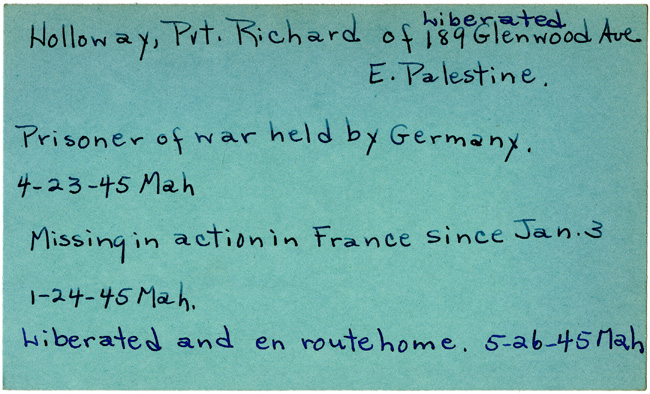 Liberated
Holloway, Pvt. Richard of 189 Glenwood Ave
E. Palestine.
Prisoner of war held by Germany.
4-23-45 Mah
Missing in action in France since Jan. 3
1-24-45 Mah.
Liberated and en route home. 5-26-45 Mah